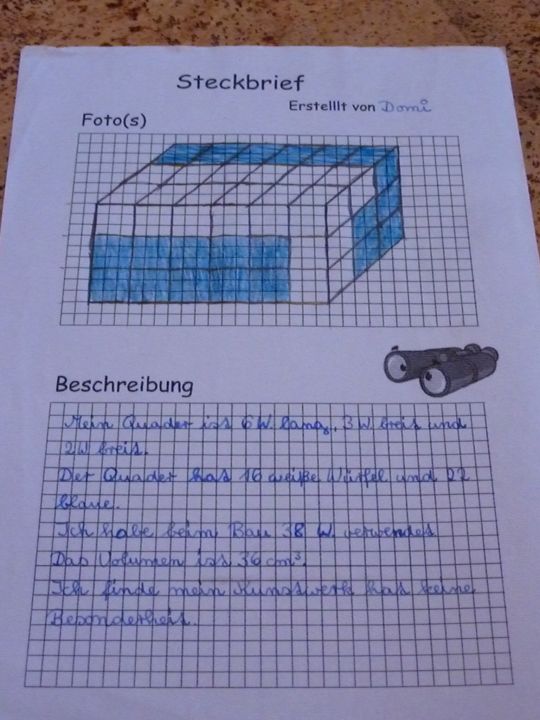 Steckbrief
Erstelllt von Domi
Foto(s)
Beschreibung
Mein Quader ist 6 W. lang, 3 W breit und
2W breit.
Der Quader hat 16 weiße Würfel und 22
blaue.
Ich habe beim Bau 38 W. verwendet
Das Volumen ist 36 cm³.
Ich finde mein Kunstwerk hat keine
Besonderheit.